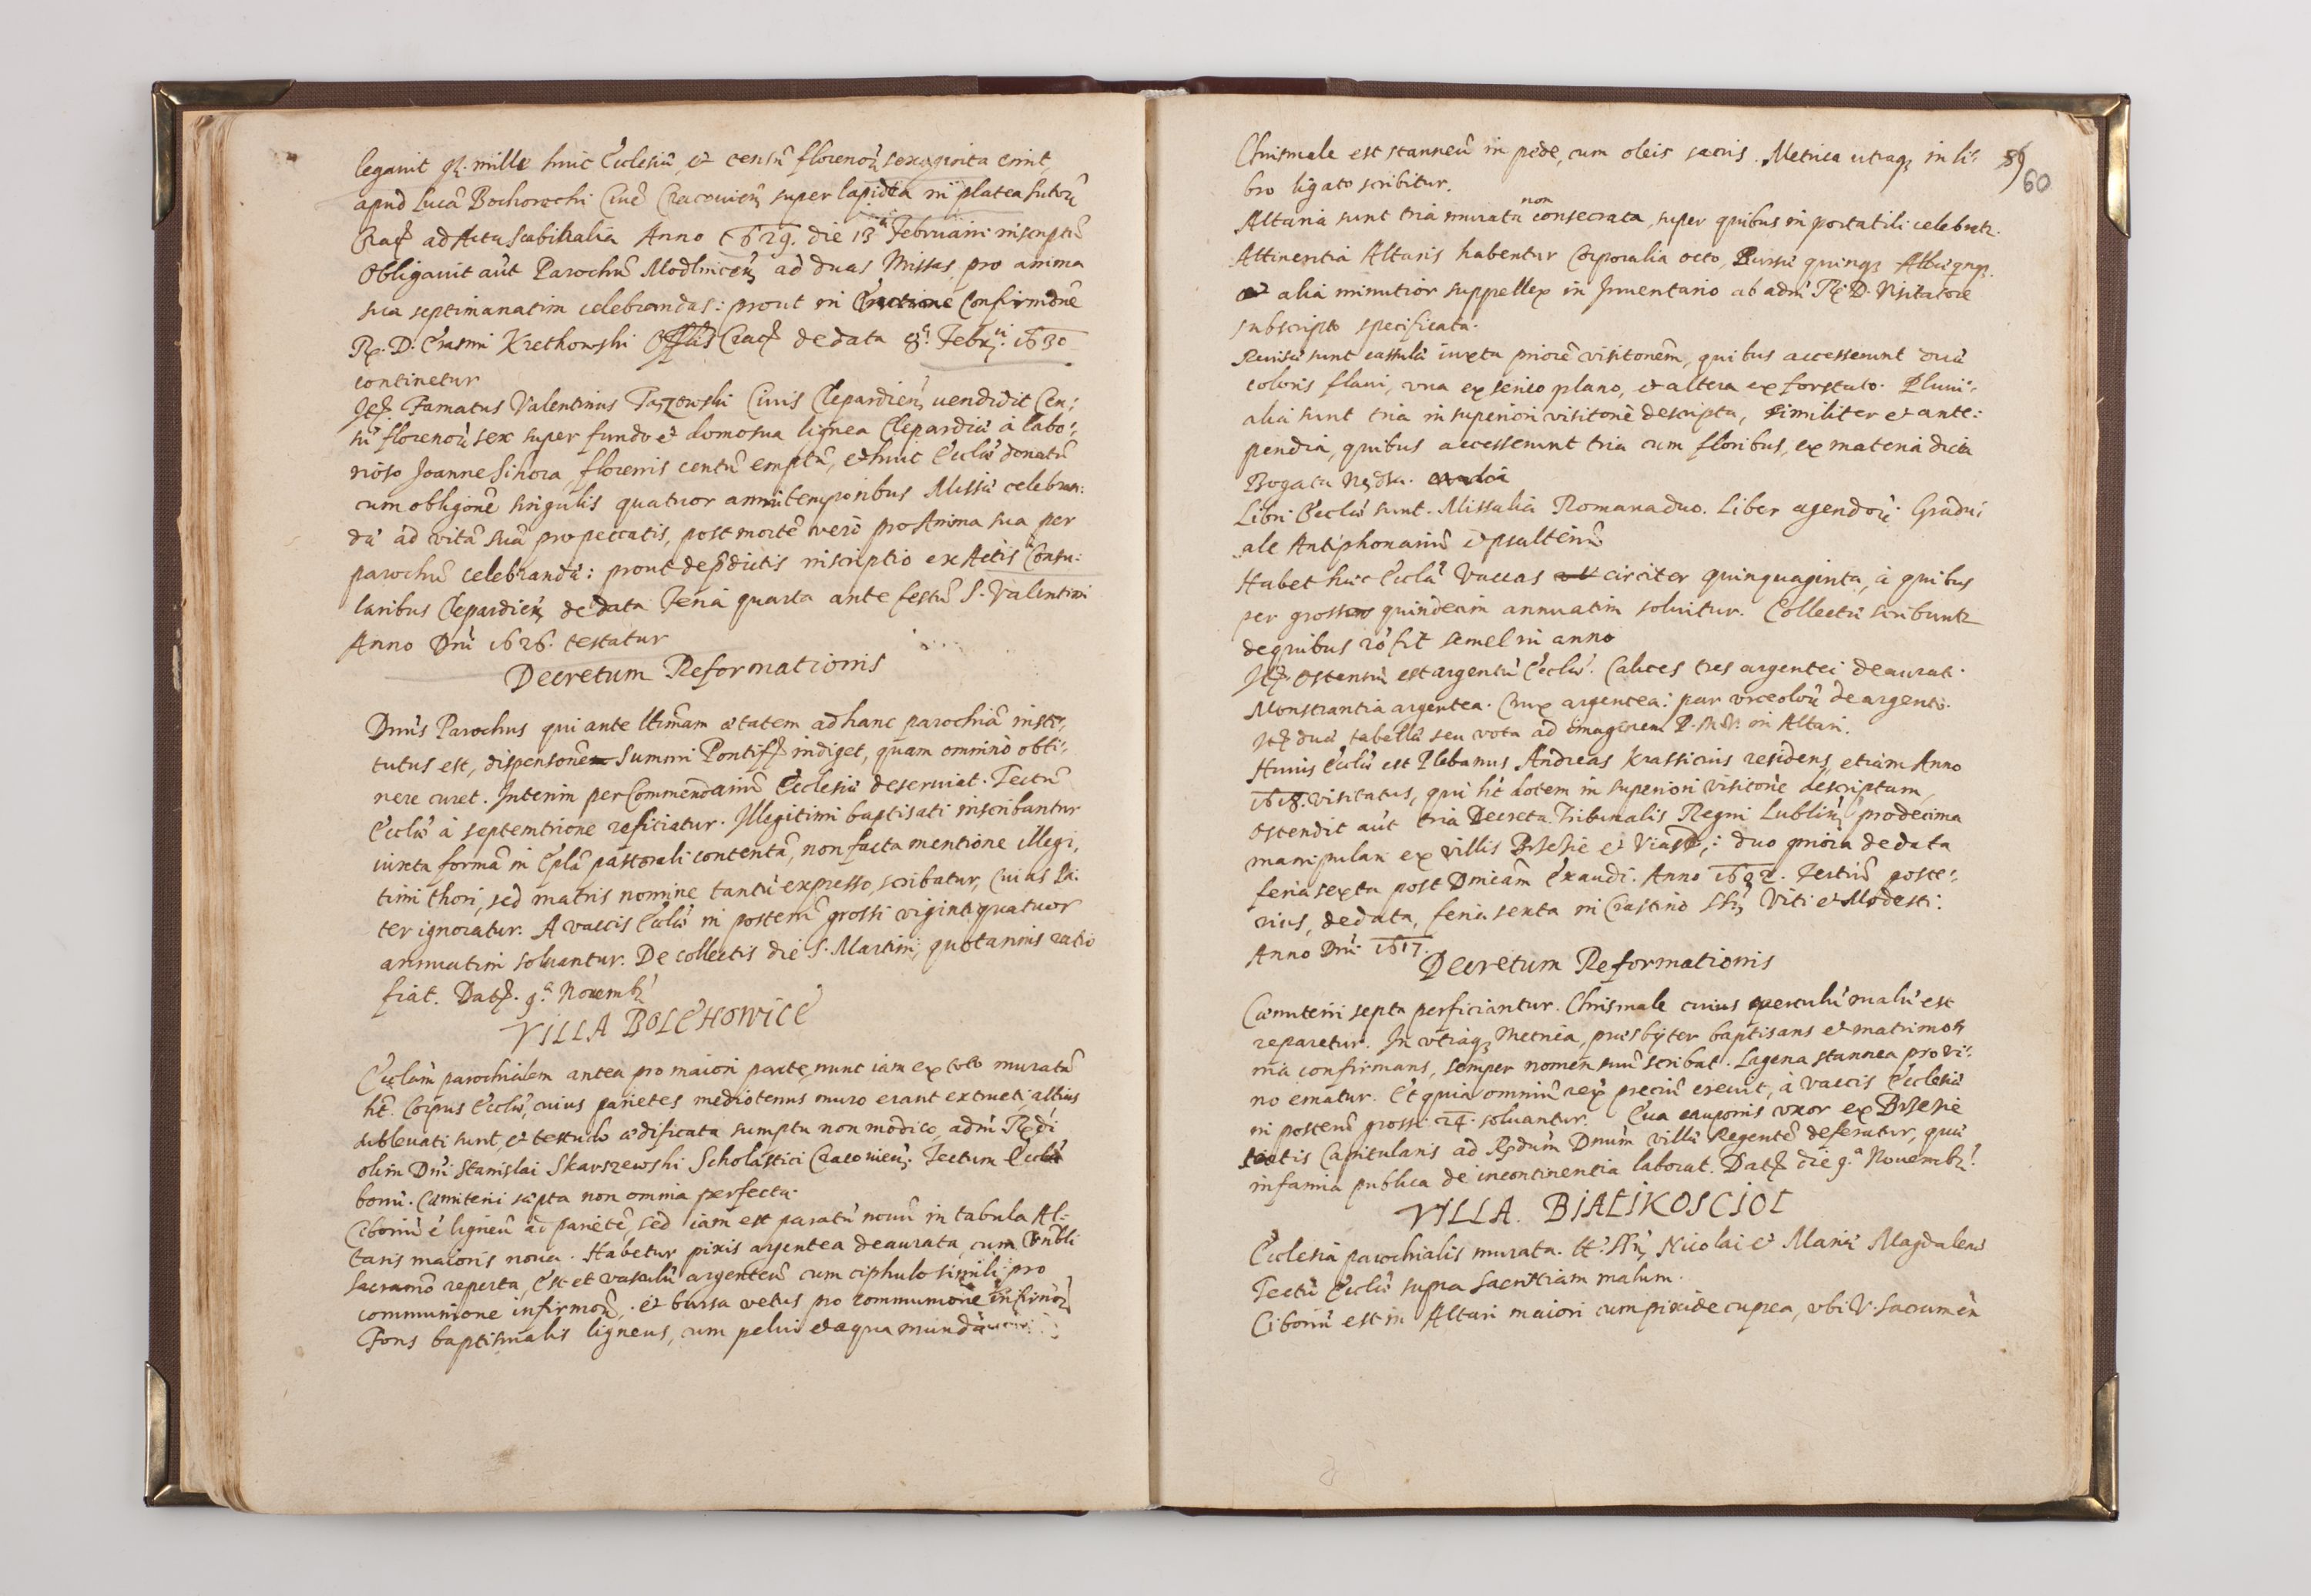 legauit fl. mille huic Ecclesiæ, et censū florenorū sexaginta emit,
apud Lucā Bochorochi Ciuē Cracouien, super lapidea in platea sutorū
Crac. ad Acta Scabinalia Anno 1629. die 13ª Februarii inscriptū
Obligauit aūt Parochū Modlnicen, ad duas Missas, pro anima
sua septimanatim celebrandas: prout in Erectione Confirmōne
R. D. Erasmi Krethowshi Offlis Crac. de data 8ª Febr. 1630
continetur
Itē. Famatus Valentinus Ciuis Clepardien, uendidit Cen:
sū florenorū sex super fundo et domo sua lignea Clepardiæ à labo:
rioso Joanne Sikora, florenis centū emptū, et huic Eccliæ donatū
cum obligōne singulis quatuor anni temporibus Missæ celebran:
dæ ad vitā suā pro peccatis, post mortē vero pro Anima sua per
parochū celebrandæ: prout de prædictis inscriptio ex Actis Consu:
laribus Clepardien, de data Feria quarta ante festū S. Valentini
Anno Dni 1626. testatur
Decretum Reformationis
Dnus Parochus qui ante ltimam ætatem ad hanc parochiā insti:
tutus est, dispensōne Summi Pontif indiget, quam omnino obti:
nere curet. Interim per Commendariū Ecclesiæ deseruiat. Tectū
Eccliæ à septemtrione reficiatur. Illegitimi baptisati inscribantur
iuxta formā in Eplā pastorali contentā, non facta mentione illegi,
timi thori, sed matris nomine tantū expresso, scribatur, Cuius Pa:
ter ignoratur. A vaccis Eccliæ in posterū grossi viginti quatuor
annuatim soluantur. De collectis die S. Martini, quotannis ratio
fiat. Dat. 9ª Nouemb
VILLA BOLEHOWICE
Ecclam parochialem antea pro maiori parte, nunc iam ex toto muratā
ht. Corpus Eccliæ, cuius parietes mediotenus muro erant extructi, altius
subleuati sunt, et testudo ædificata sumptu non modico, adm Rdi
olim Dni Stanislai Skarszewshi Scholastici Cracouien. Tectum Eccliæ
bonū. Cæmiterii sæpta non omnia perfecta.
Ciboriū é ligneū ad parietē, sed iam est paratū nouū in tabula Al:
taris maioris noua. Habetur pixis argentea deaurata, cum Vnbli
Sacramō reperta, Est et vasculū argenteū cum ciphulo simili pro
communione infirmorū, et bursa vetus pro communione infirmorū
Fons baptismalis ligneus, cum pelui et aqua munda
Chrismale est stanneū in pede, cum oleis sacris. Metrica utraq, in li:
bro ligato scribitur.
59
60
Altaria sunt tria murata non consecrata, super quibus in portatili celebratr.
Attinentia Altaris habentur Corporalia octo, Bursæ quinq, Albæ qnq.
et alia minutior suppellex in Inuentario ab adm R. D. Visitatore
subscripto specificata.
Rursū sunt cassulæ iuxta priorē visitonēm, quibus accesserunt duæ
coloris flaui, vna ex serico plano, et altera ex forstato. Pluui:
alia sunt tria in superiori visitonē descripta, similiter et ante:
pendia, quibus accesserunt tria cum floribus, ex materia dicta
Bogata Nędza.
Libri Eccliæ sunt. Missalia Romana duo. Liber agendorū. Gradu:
ale Antiphonariū et psalteriū
Habet hæc Eccla Vaccas circiter quinquaginta, à quibus
per grossos quindecim annuatim soluitur. Collectæ scribuntr
de quibus rō fit semel in anno
Itē Ostensū est argentū Eccliæ. Calices tres argentei deaurati.
Monstrantia argentea. Crux argentea: par vrceolorū de argento.
Itē duæ tabellæ seu vota ad imaginem B. M. V. in Altari.
Huius Eccliæ est Plebanus Andreas Krassicius residens, etiam Anno
1618. visitatus, qui ht dotem in superiori visitone descriptam,
Ostendit aūt tria Decreta Tribunalis Regni Lublin, pro decima
manipulari ex villis Brzezie et: duo priora de data
feria sexta post Dnicam Exaudi. Anno 1602. Tertiū poste:
rius, de data, feria sexta in Crastino SS, Viti et Modesti.
Anno Dni 1617.
Decretum Reformationis
Cæmiterii septa perficiantur. Chrismale cuius operculū malū est
reparetur. In vtraq, Metrica, præsbyter baptisans et matrimo
nia confirmans, semper nomen suū scribat. Lagena stannea pro vi:
no ematur. Et quia omniū rerū preciū creuit, à vaccis Ecclesiæ
in posterū grossi 24. soluantur. Eua cauponis vxor ex Brzezie
Capitularis ad Rdum Dnum villæ Regentē deferatur, quæ
infamia publica de incontinentia laborat. Dat die 9ª Nouemb.
VILLA. BIALIKOSCIOL
Ecclesia parochialis murata. tt. SS, Nicolai et Mariæ Magdalenæ
Tectū Eccliæ supra Sacristiam malum.
Ciboriū est in Altari maiori cum pixide cuprea, vbi V. Sacramen